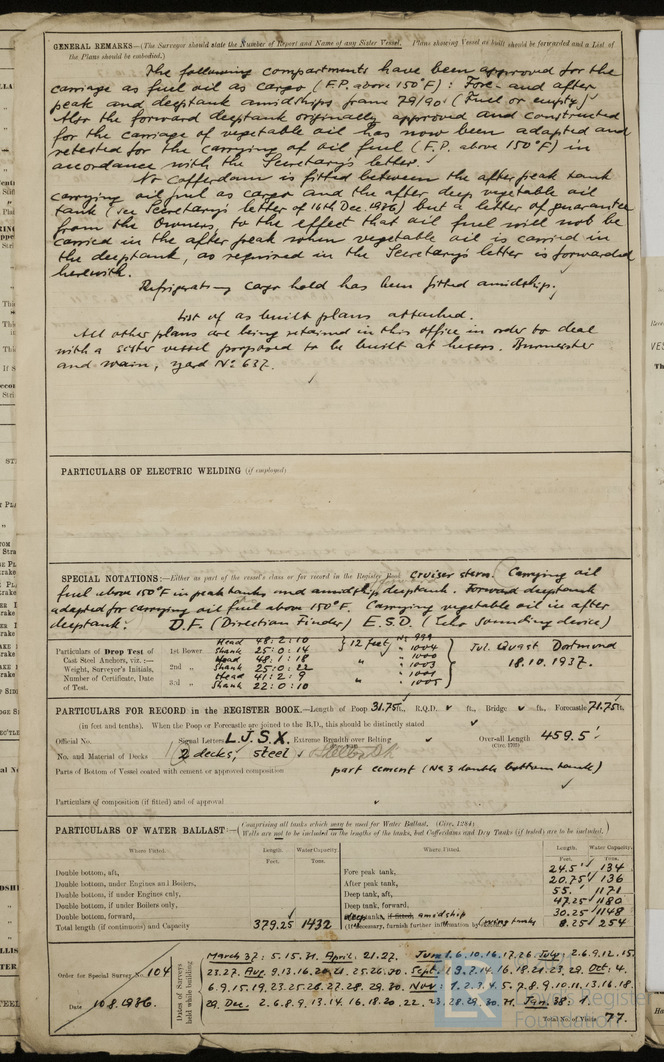 GENERAL REMARKS—(The Surveyor should state the Number of Report and Name of any Sister Vessel. Plans showing Vessel as built should be forwarded and a List of
the Plans should be embodied.)
The following compartments have been approved for the
carriage as fuel oil as cargo (F.P. above 150°F): Fore- and after
peak and deeptank amidships frame 79/90: (Fuel or empty)
Also the forward deeptank originally approved and constructed
for the carriage of vegetable oil has now been adapted and
retested for the carrying of oil fuel (F.P. above 150°F) in
accordance with the Secretary's letter.
No cofferdam is fitted between the after peak tank
carrying oil fuel as cargo and the after deep vegetable oil
tank (see Secretary's letter of 16th Dec. 1936) but a letter of guarantee
from the Owners, to the effect that oil fuel will not be
carried in the after peak when vegetable oil is carried in
the deeptank, as required in the Secretary's letter is forwarded
herewith.
Refrigerating cargo hold has been fitted amidship.
List of as built plans attached.
All other plans are being retained in this office in order to deal
with a sister vessel proposed to be built at Messrs. Burmeister
and Wain, yard No 637.
PARTICULARS OF ELECTRIC WELDING (if employed)
SPECIAL NOTATIONS:—Either as part of the vessel's class or for record in the Register Book. Cruiser stern. Carrying oil
fuel above 150°F in peaktanks and amidship deeptank. Forward deeptank
adapted for carrying oil fuel above 150°F. Carrying vegetable oil in after
deeptank. D.F. (Direction Finder) E.S.D. (Echo Sounding device)
Particulars of Drop Test of Cast Steel Anchors, viz.:— Weight, Surveyor's Initials, Number of Certificate, Date of Test.
1st Bower Head 48:2:10 Shank 25:0:14 12 feet No 999 " 1004 Jul. Quast Dortmund
2nd " Head 48:1:18 Shank 25:0:22 " " 1000 " 1003 18.10.1937.
3rd " Head 41:2:9 Shank 22:0:10 " " 1001 " 1005
PARTICULARS FOR RECORD IN THE REGISTER BOOK.—Length of Poop 31.75 ft., R.Q.D. ft., Bridge ft., Forecastle 71.75 ft.
(in feet and tenths). When the Poop or Forecastle are joined to the B.D., this should be distinctly stated
Official No. Signal Letters L.J.S.X. Extreme Breadth over Belting Over-all Length (Circ. 1703) 459.5'
No. and Material of Decks 2 decks, steel
Parts of Bottom of Vessel coated with cement or approved composition part cement (No 3 double bottom tank)
Particulars of composition (if fitted) and of approval
PARTICULARS OF WATER BALLAST:—(Comprising all tanks which may be used for Water Ballast. (Circ. 1284)
Wells are not to be included in the lengths of the tanks, but Cofferdams and Dry Tanks (if tested) are to be included.)
Where Fitted. Length. Water Capacity. Where Fitted. Length. Water Capacity.
Feet. Tons. Feet. Tons.
Double bottom, aft, Fore peak tank, 24.5 134
Double bottom, under Engines and Boilers, After peak tank, 20.75 136
Double bottom, if under Engines only, Deep tank, aft, 55. 1171
Double bottom, if under Boilers only, Deep tank, forward, 47.25 1180
Double bottom, forward, deep tanks, if fitted, amidship 30.25 1148
Total length (if continuous) and Capacity 379.25 1432 (If necessary, furnish further information by wing tanks 8.25 254
Order for Special Survey No. 104
Date 10.8.1936.
Dates of Surveys held while building
March 37: 5.15.31. April. 21.27. June 1.6.10.16.17.26. July: 2.6.9.12.15.
23.27. Aug. 9.13.16.20.21.25.26.30. Sept. 1.3.7.14.16.18.21.23.29. Oct: 4.
6.9.15.19.23.25.26.27.28.29.30. Nov: 1.2.3.4.5.7.8.9.10.11.13.16.18.
29. Dec. 2.6.8.9.13.14.16.18.20.22.23.28.29.30.31. Jan. 38: 1.
Total No. of Visits 77.
LR
Lloyd's Register
Foundation